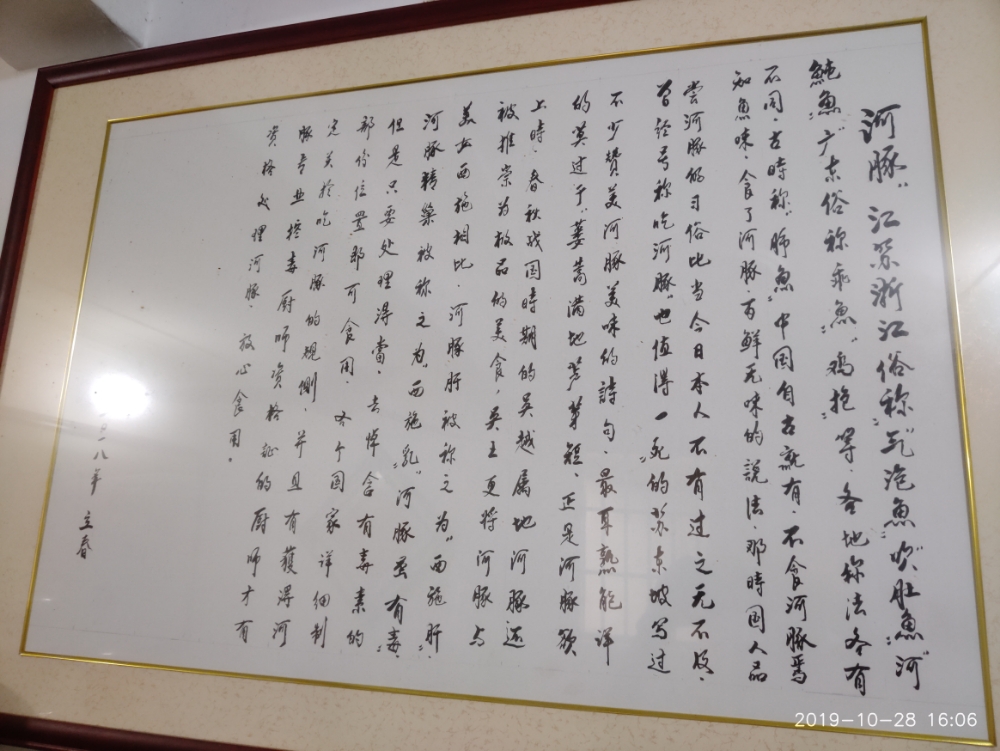 河豚“江苏浙江俗称“气泡鱼”“吹肚鱼”“河
鲀鱼”广东俗称乖鱼”“鸡抱”等、各地称法各有
不同、古时称“肺鱼”中国自古就有、不食河豚焉
知鱼味、食了河豚百鲜无味的說法、那時国人品
尝河豚的习俗比当今日本人不有过之无不及、
曾经号称吃河豚“也值得一死”的苏东坡写过
不少赞美河豚美味的詩句、最耳熟能详
的莫过于“蒌蒿满地芦芽短、正是河豚欲
上時、春秋战国時期的吴越属地河豚还
被推崇为极品的美食，吴王更将河豚与
美女西施相比、河豚肝被称之为“西施肝”、
河豚精巢被称之为“西施乳”河豚虽有毒、
但是只要处理得當、去掉含有毒素的
部份位置都可食用、各个国家详细制
定关於吃河豚的规则、并且有獲得河
豚专业拷毒厨师资格证的厨师才有
资格处理河豚、放心食用。
八年 立春
2019-10-28 16:06